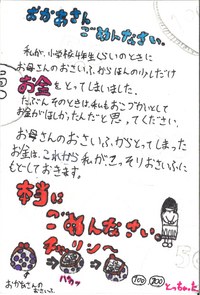 おかあさん
ごめんなさい。
私が、小学校4年生くらいのときに
お母さんのおさいふからほんの少しだけ
お金をとってしまいました。
たぶんそのときは、私もおこづかいとして
お金がほしかったんだと思ってください。
お母さんのおさいふからとってしまった
お金は、これから私がこっそりおさいふに
もどしておきます。
本当に
ごめんなさい。
チャリン〜
パカッ
おかあさんの
おさいふ
100 100